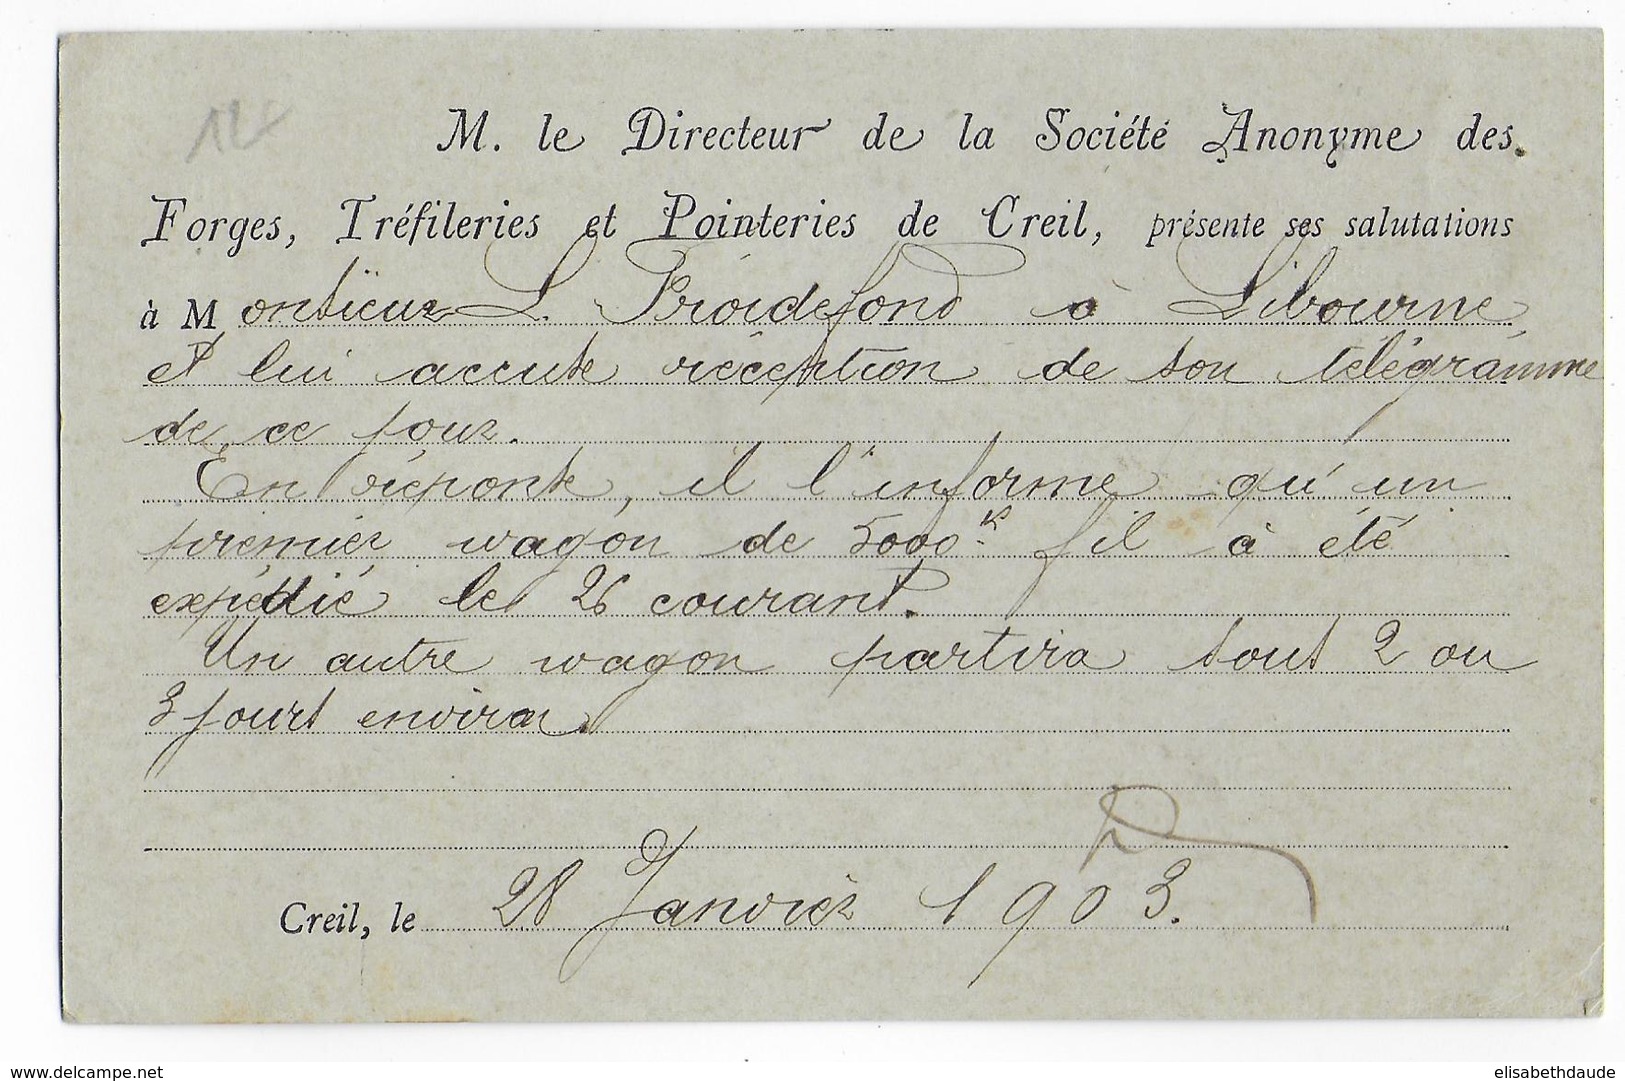 M. le Directeur de la Société Anonyme des
Forges, Tréfileries et Pointeries de Creil, présente ses salutations
à Monsieur L. Froidefond à Libourne
et lui accuse réception de son télégramme
de ce jour.
En réponse, il l'informe qu'un
premier wagon de 5000ks fil a été
expédié le 26 courant.
Un autre wagon partira sous 2 ou
3 jours environ.
Creil, le 28 Janvier 1903.
elisabethdaude